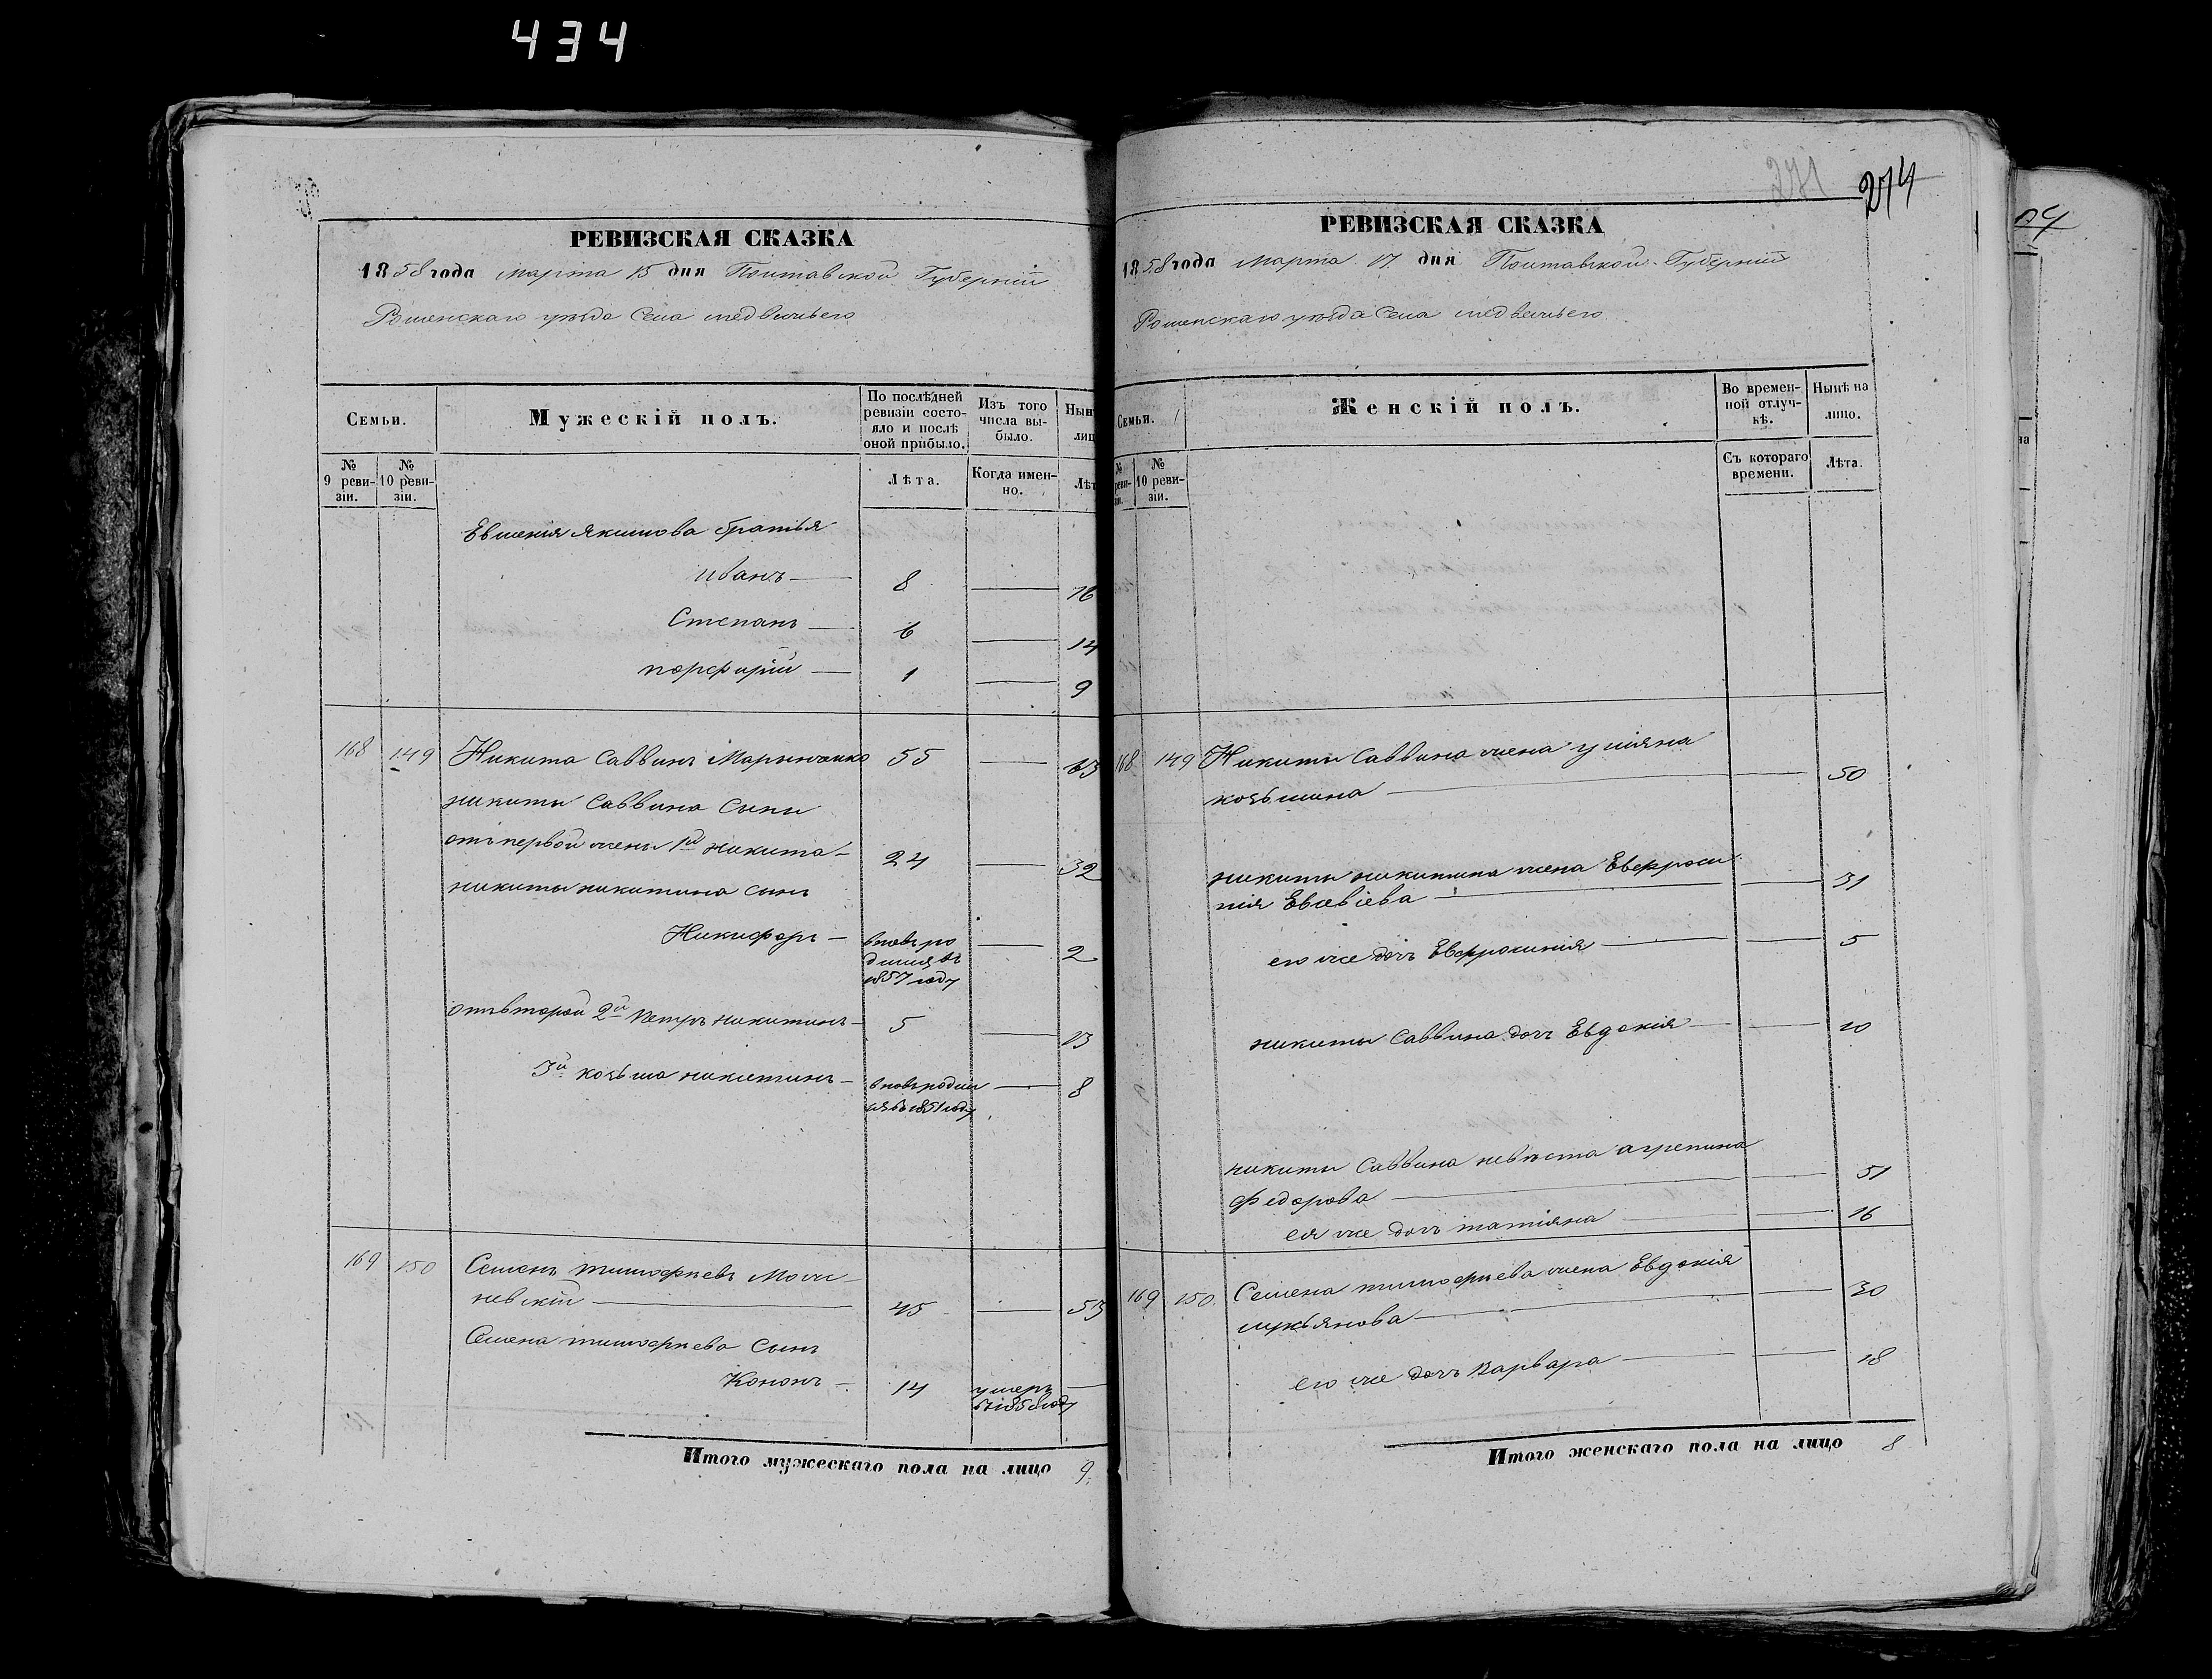 434
РЕВИЗСКАЯ СКАЗКА
1858 года марта 15 дня Полтавской Губерніи
Роменскаго уѣзда Села медвежьего
Семьи.
Мужескій полъ.
По послѣдней ревизіи состояло и послѣ оной прибыло.
Изъ того числа выбыло.
Нын
лиц
№ 9 ревизіи.
№ 10 ревизіи.
Лѣта.
Когда именно.
Лѣт
Евменія Якимова братья
иванъ — 8 — 16
Степанъ — 6 — 14
порфирій — 1 — 9
168 149 Никита Саввинъ Марынченко 55 — 63
никиты Саввина Сыны
отъ первой жены 1й никита — 24 — 32
никиты никитина сынъ
Никифоръ — вновь ро — 2
дился въ
1857 году
отъ второй 2й петръ никитинъ — 5 — 13
3й козьма никитинъ — вновь родил — 8
ся въ 1851 году
169 150 Семенъ тимофѣевъ Моги
невскій — 45 — 53
Семена тимофѣева Сынъ
Кононъ — 14 умеръ —
въ 1858 году
Итого мужескаго пола на лицо 9.
271 274
РЕВИЗСКАЯ СКАЗКА
1858 года марта 17. дня Полтавской Губерніи
Роменскаго уѣзда Села медвежьего
Семьи.
Женскій полъ.
Во временной отлучкѣ.
Нынѣ на лицо.
№ реви-
№ 10 ревизіи.
Съ котораго времени.
Лѣта.
168 149 Никиты Саввина жена уліяна
козьмина — 50
никиты никитина жена Евфроси
нія Евсевіева — 31
его же дочь Евфросинія — 5
никиты Саввина дочь Евдокія — 10
никиты Саввина невѣста агрепина
федорова — 51
ея же дочь татіяна — 16
169 150. Семена тимофѣева жена Евдокія
лукьянова — 30
его же дочь Варвара — 18
Итого женскаго пола на лицо 8